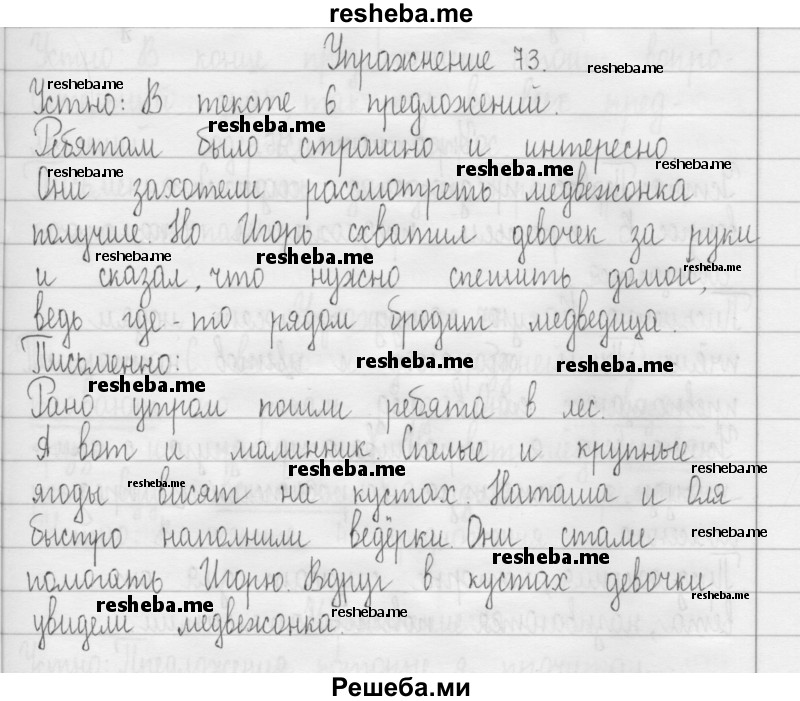 resheba.me
Упражнение 73.
resheba.me
resheba.me
Устно: В тексте 6 предложений.
resheba.me
Ребятам было страшно и интересно
resheba.me resheba.me resheba.me
Они захотели рассмотреть медвежонка
получше. Но Игорь схватил девочек за руки
resheba.me resheba.me resheba.me
и сказал, что нужно спешить домой,
ведь где-то рядом бродит медведица.
Письменно:
resheba.me resheba.me
resheba.me
Рано утром пошли ребята в лес.
А вот и малинник. Спелые и крупные
resheba.me resheba.me
ягоды висят на кустах. Наташа и Оля
resheba.me
быстро наполнили ведёрки. Они стали
resheba.me
resheba.me
помогать Игорю. Вдруг в кустах девочки
resheba.me resheba.me resheba.me
увидели медвежонка.
Решеба.ми